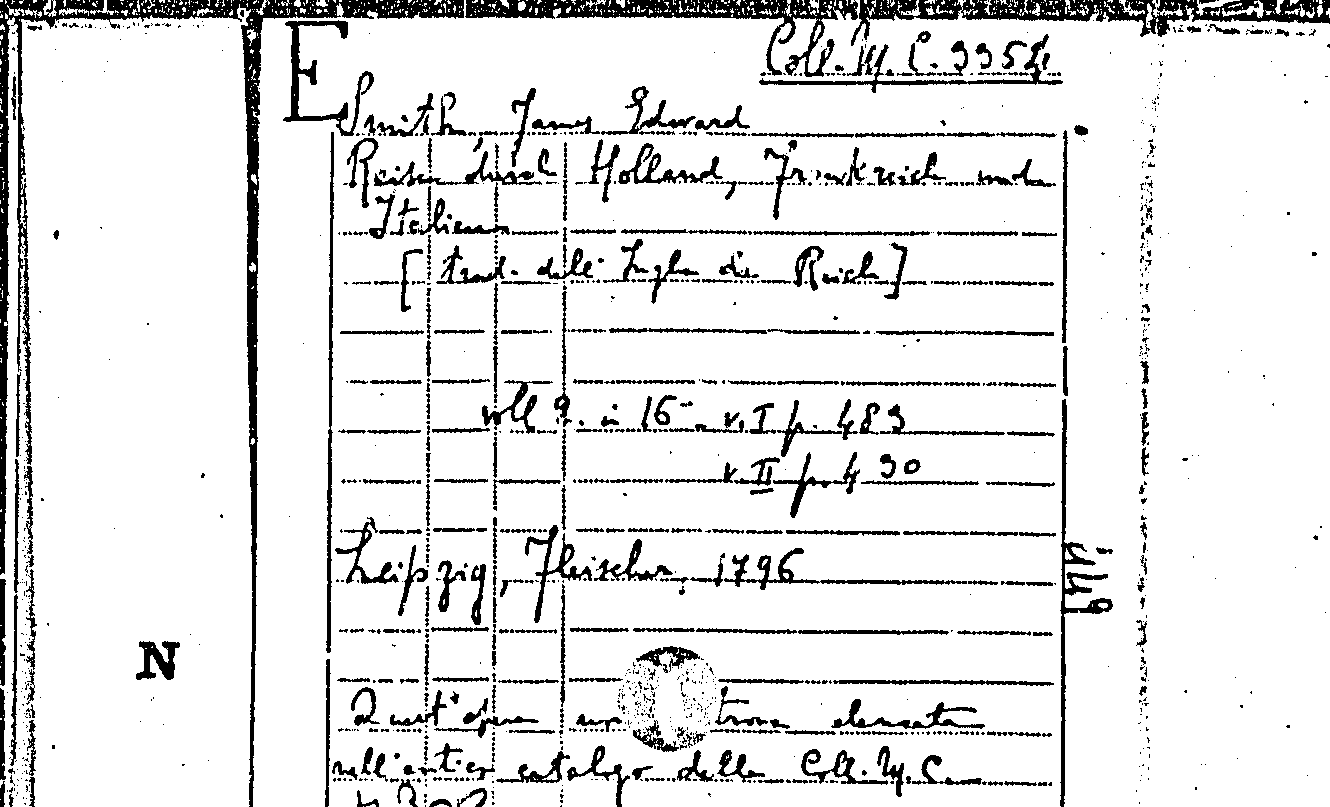 E
Coll. M. C. 3354
Smith, James Edward
Reisen durch Holland, Frankreich und
Italien
[trad. dall' Ingl. da Reich]
voll 2. in 16° v. I p. 483
v. II p. 430
Leipzig, Fleischer, 1796
N
Quest'opera trova elencata
nell'antico catalogo della Coll. M. C.